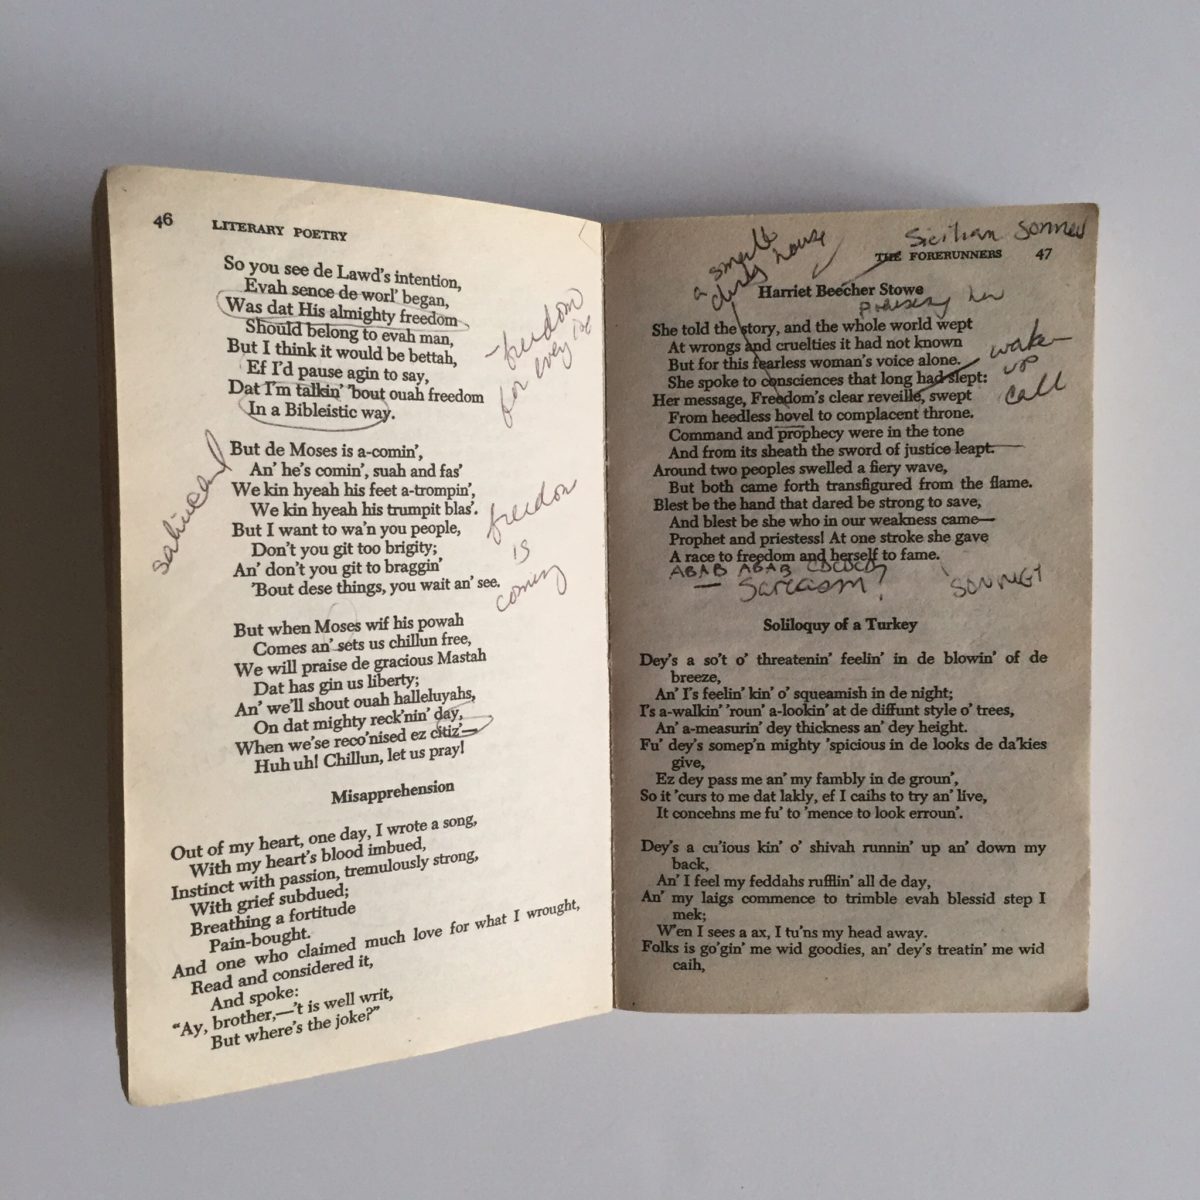 46 LITERARY POETRY
So you see de Lawd's intention,
Evah sence de worl' began,
Was dat His almighty freedom
Should belong to evah man,
But I think it would be bettah,
Ef I'd pause agin to say,
Dat I'm talkin' 'bout ouah freedom
In a Bibleistic way.
- freedom
for every one
But de Moses is a-comin',
An' he's comin', suah and fas'
We kin hyeah his feet a-trompin',
We kin hyeah his trumpit blas'.
But I want to wa'n you people,
Don't you git too brigity;
An' don't you git to braggin'
'Bout dese things, you wait an' see.
freedom
is
coming
But when Moses wif his powah
Comes an' sets us chillun free,
We will praise de gracious Mastah
Dat has gin us liberty;
An' we'll shout ouah halleluyahs,
On dat mighty reck'nin' day,
When we'se reco'nised ez citiz'—
Huh uh! Chillun, let us pray!
Misapprehension
Out of my heart, one day, I wrote a song,
With my heart's blood imbued,
Instinct with passion, tremulously strong,
With grief subdued;
Breathing a fortitude
Pain-bought.
And one who claimed much love for what I wrought,
Read and considered it,
And spoke:
"Ay, brother,—'t is well writ,
But where's the joke?"
Sicilian Sonnet
THE FORERUNNERS 47
a small
dirty house
Harriet Beecher Stowe
Praising her
She told the story, and the whole world wept
At wrongs and cruelties it had not known
But for this fearless woman's voice alone.
She spoke to consciences that long had slept:
Her message, Freedom's clear reveille, swept
From heedless hovel to complacent throne.
Command and prophecy were in the tone
And from its sheath the sword of justice leapt.
Around two peoples swelled a fiery wave,
But both came forth transfigured from the flame.
Blest be the hand that dared be strong to save,
And blest be she who in our weakness came—
Prophet and priestess! At one stroke she gave
A race to freedom and herself to fame.
wake
up
call
ABAB ABAB CDCDCD
— Sarcasm?
SONNET
Soliloquy of a Turkey
Dey's a so't o' threatenin' feelin' in de blowin' of de
breeze,
An' I's feelin' kin' o' squeamish in de night;
I's a-walkin' 'roun' a-lookin' at de diffunt style o' trees,
An' a-measurin' dey thickness an' dey height.
Fu' dey's somep'n mighty 'spicious in de looks de da'kies
give,
Ez dey pass me an' my fambly in de groun',
So it 'curs to me dat lakly, ef I caihs to try an' live,
It concehns me fu' to 'mence to look erroun'.
Dey's a cu'ious kin' o' shivah runnin' up an' down my
back,
An' I feel my feddahs rufflin' all de day,
An' my laigs commence to trimble evah blessid step I
mek;
W'en I sees a ax, I tu'ns my head away.
Folks is go'gin' me wid goodies, an' dey's treatin' me wid
caih,